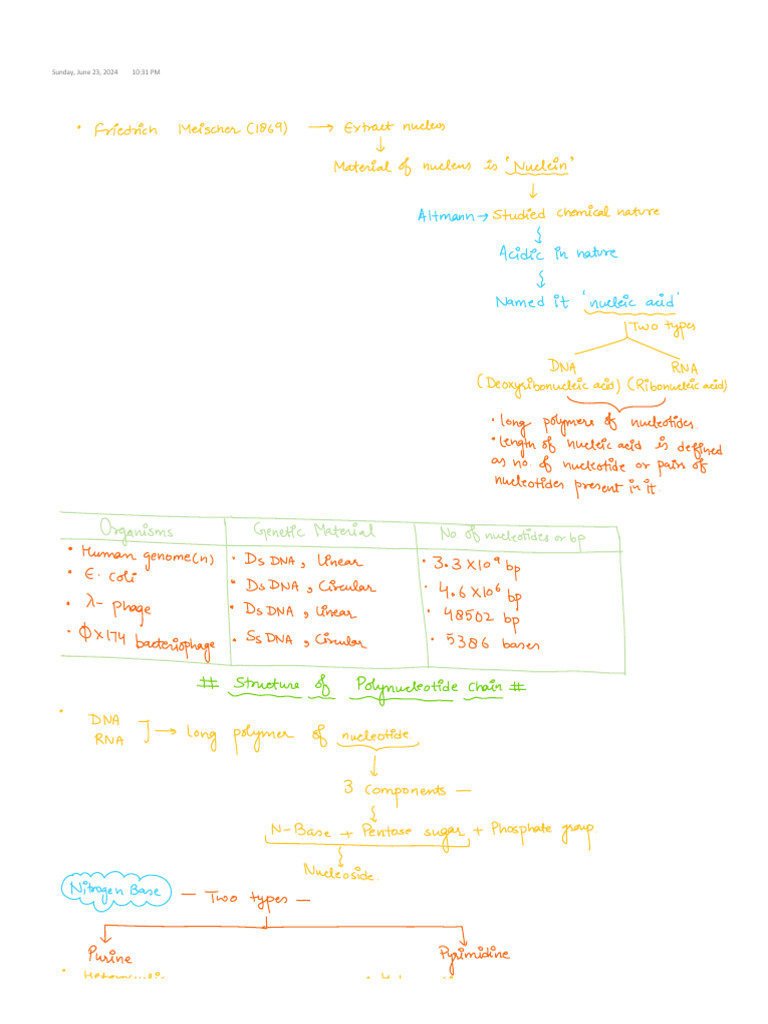 Sunday, June 23, 2024 10:31 PM
• Friedrich Meischer (1869) → Extract nucleus
Material of nucleus is 'Nuclein'
Altmann → Studied chemical nature
Acidic in nature
Named it 'nucleic acid'
Two types
DNA RNA
(Deoxyribonucleic acid) (Ribonucleic acid)
• long polymers of nucleotides.
• length of nucleic acid is defined
as no. of nucleotide or pair of
nucleotides present in it.
Organisms Genetic Material No of nucleotides or bp
• Human genome(n) • Ds DNA, Linear • 3.3 X 10⁹ bp
• E. coli • Ds DNA, Circular • 4.6 X 10⁶ bp
• λ- phage • Ds DNA, Linear • 48502 bp
• ΦX174 bacteriophage • Ss DNA, Circular • 5386 bases
# Structure of Polynucleotide Chain #
• DNA
RNA → Long polymer of nucleotide
3 Components —
N-Base + Pentose sugar + Phosphate group
Nucleoside.
Nitrogen Base — Two types —
Purine Pyrimidine